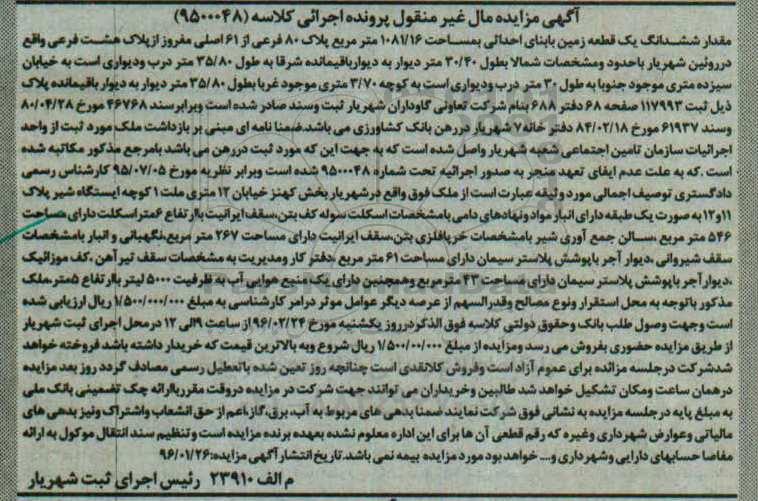 آگهی مزایده مال غیر منقول پرونده اجرائی کلاسه (۹۵۰۰۰۴۸)
مقدار ششدانگ یک قطعه زمین بابنای احداثی بمساحت ۱۰۸۱/۱۶ متر مربع پلاک ۸۰ فرعی از ۶۱ اصلی مفروز ازپلاک هشت فرعی واقع
درروئین شهریار باحدود ومشخصات شمالا بطول ۳۰/۴۰ متر دیوار به دیوارباقیمانده شرقا به طول ۳۵/۸۰ متر درب ودیواری است به خیابان
سیزده متری موجود جنوبا به طول ۳۰ متر درب ودیواری است به کوچه ۳/۷۰ متری موجود غربا بطول ۳۵/۸۰ متر دیوار به دیوار باقیمانده پلاک
ذیل ثبت ۱۱۷۹۹۳ صفحه ۶۸ دفتر ۶۸۸ بنام شرکت تعاونی گاوداران شهریار ثبت وسند صادر شده است وبرابرسند ۴۶۷۶۸ مورخ ۸۰/۰۴/۲۸
وسند ۶۱۹۳۷ مورخ ۸۴/۰۲/۱۸ دفتر خانه۷ شهریار دررهن بانک کشاورزی می باشد.ضمنا نامه ای مبنی بر بازداشت ملک مورد ثبت از واحد
اجرائیات سازمان تامین اجتماعی شعبه شهریار واصل شده است که به جهت این که مورد ثبت دررهن می باشد بامرجع مذکور مکاتبه شده
است .که به علت عدم ایفای تعهد منجر به صدور اجرائیه تحت شماره ۹۵۰۰۰۴۸ شده است وبرابر نظریه مورخ ۹۵/۰۷/۰۵ کارشناس رسمی
دادگستری توصیف اجمالی مورد وثیقه عبارت است از ملک فوق واقع درشهریار بخش کهنز خیابان ۱۲ متری ملت ۱ کوچه ایستگاه شیر پلاک
۱۱و۱۲ به صورت یک طبقه دارای انبار مواد ونهادهای دامی بامشخصات اسکلت سوله کف بتن،سقف ایرانیت باارتفاع ۶متراسکلت دارای مساحت
۵۴۶ متر مربع ،سالن جمع آوری شیر بامشخصات خرپافلزی بتن،سقف ایرانیت دارای مساحت ۲۶۷ متر مربع،نگهبانی و انبار بامشخصات
سقف شیروانی ،دیوار آجر باپوشش پلاستر سیمان دارای مساحت ۶۱ متر مربع ،دفتر کار ومدیریت به مشخصات سقف تیرآهن ،کف موزائیک
،دیوارآجر باپوشش پلاستر سیمان دارای مساحت ۴۳ مترمربع وهمچنین دارای یک منبع هوایی آب به ظرفیت ۵۰۰۰ لیتر باارتفاع ۵متر.ملک
مذکور باتوجه به محل استقرار ونوع مصالح وقدرالسهم از عرصه دیگر عوامل موثر درامر کارشناسی به مبلغ ۱/۵۰۰/۰۰۰/۰۰۰ ریال ارزیابی شده
است وجهت وصول طلب بانک وحقوق دولتی کلاسه فوق الذکردرروز یکشنبه مورخ ۹۶/۰۲/۲۴ از ساعت ۹الی ۱۲ درمحل اجرای ثبت شهریار
از طریق مزایده حضوری بفروش می رسد ومزایده از مبلغ ۱/۵۰۰/۰۰/۰۰۰ ریال شروع وبه بالاترین قیمت که خریدار داشته باشد فروخته خواهد
شدشرکت درجلسه مزائده برای عموم آزاد است وفروش کلانقدی است چنانچه روز تعیین شده باتعطیل رسمی مصادف گردد روز بعد مزایده
درهمان ساعت ومکان تشکیل خواهد شد طالبین وخریداران می توانند جهت شرکت در مزایده دروقت مقررباارائه چک تضمینی بانک ملی
به مبلغ پایه درجلسه مزایده به نشانی فوق شرکت نمایند ضمنا بدهی های مربوط به آب، برق،گاز،اعم از حق انشعاب واشتراک ونیز بدهی های
مالیاتی وعوارض شهرداری وغیره که رقم قطعی آن ها برای این اداره معلوم نشده بعهده برنده مزایده است وتنظیم سند انتقال موکول به ارائه
مفاصا حسابهای دارایی وشهرداری و.... خواهد بود مورد مزایده بیمه نمی باشد.تاریخ انتشار آگهی مزایده:۹۶/۰۱/۲۶
م الف ۲۳۹۱۰ رئیس اجرای ثبت شهریار